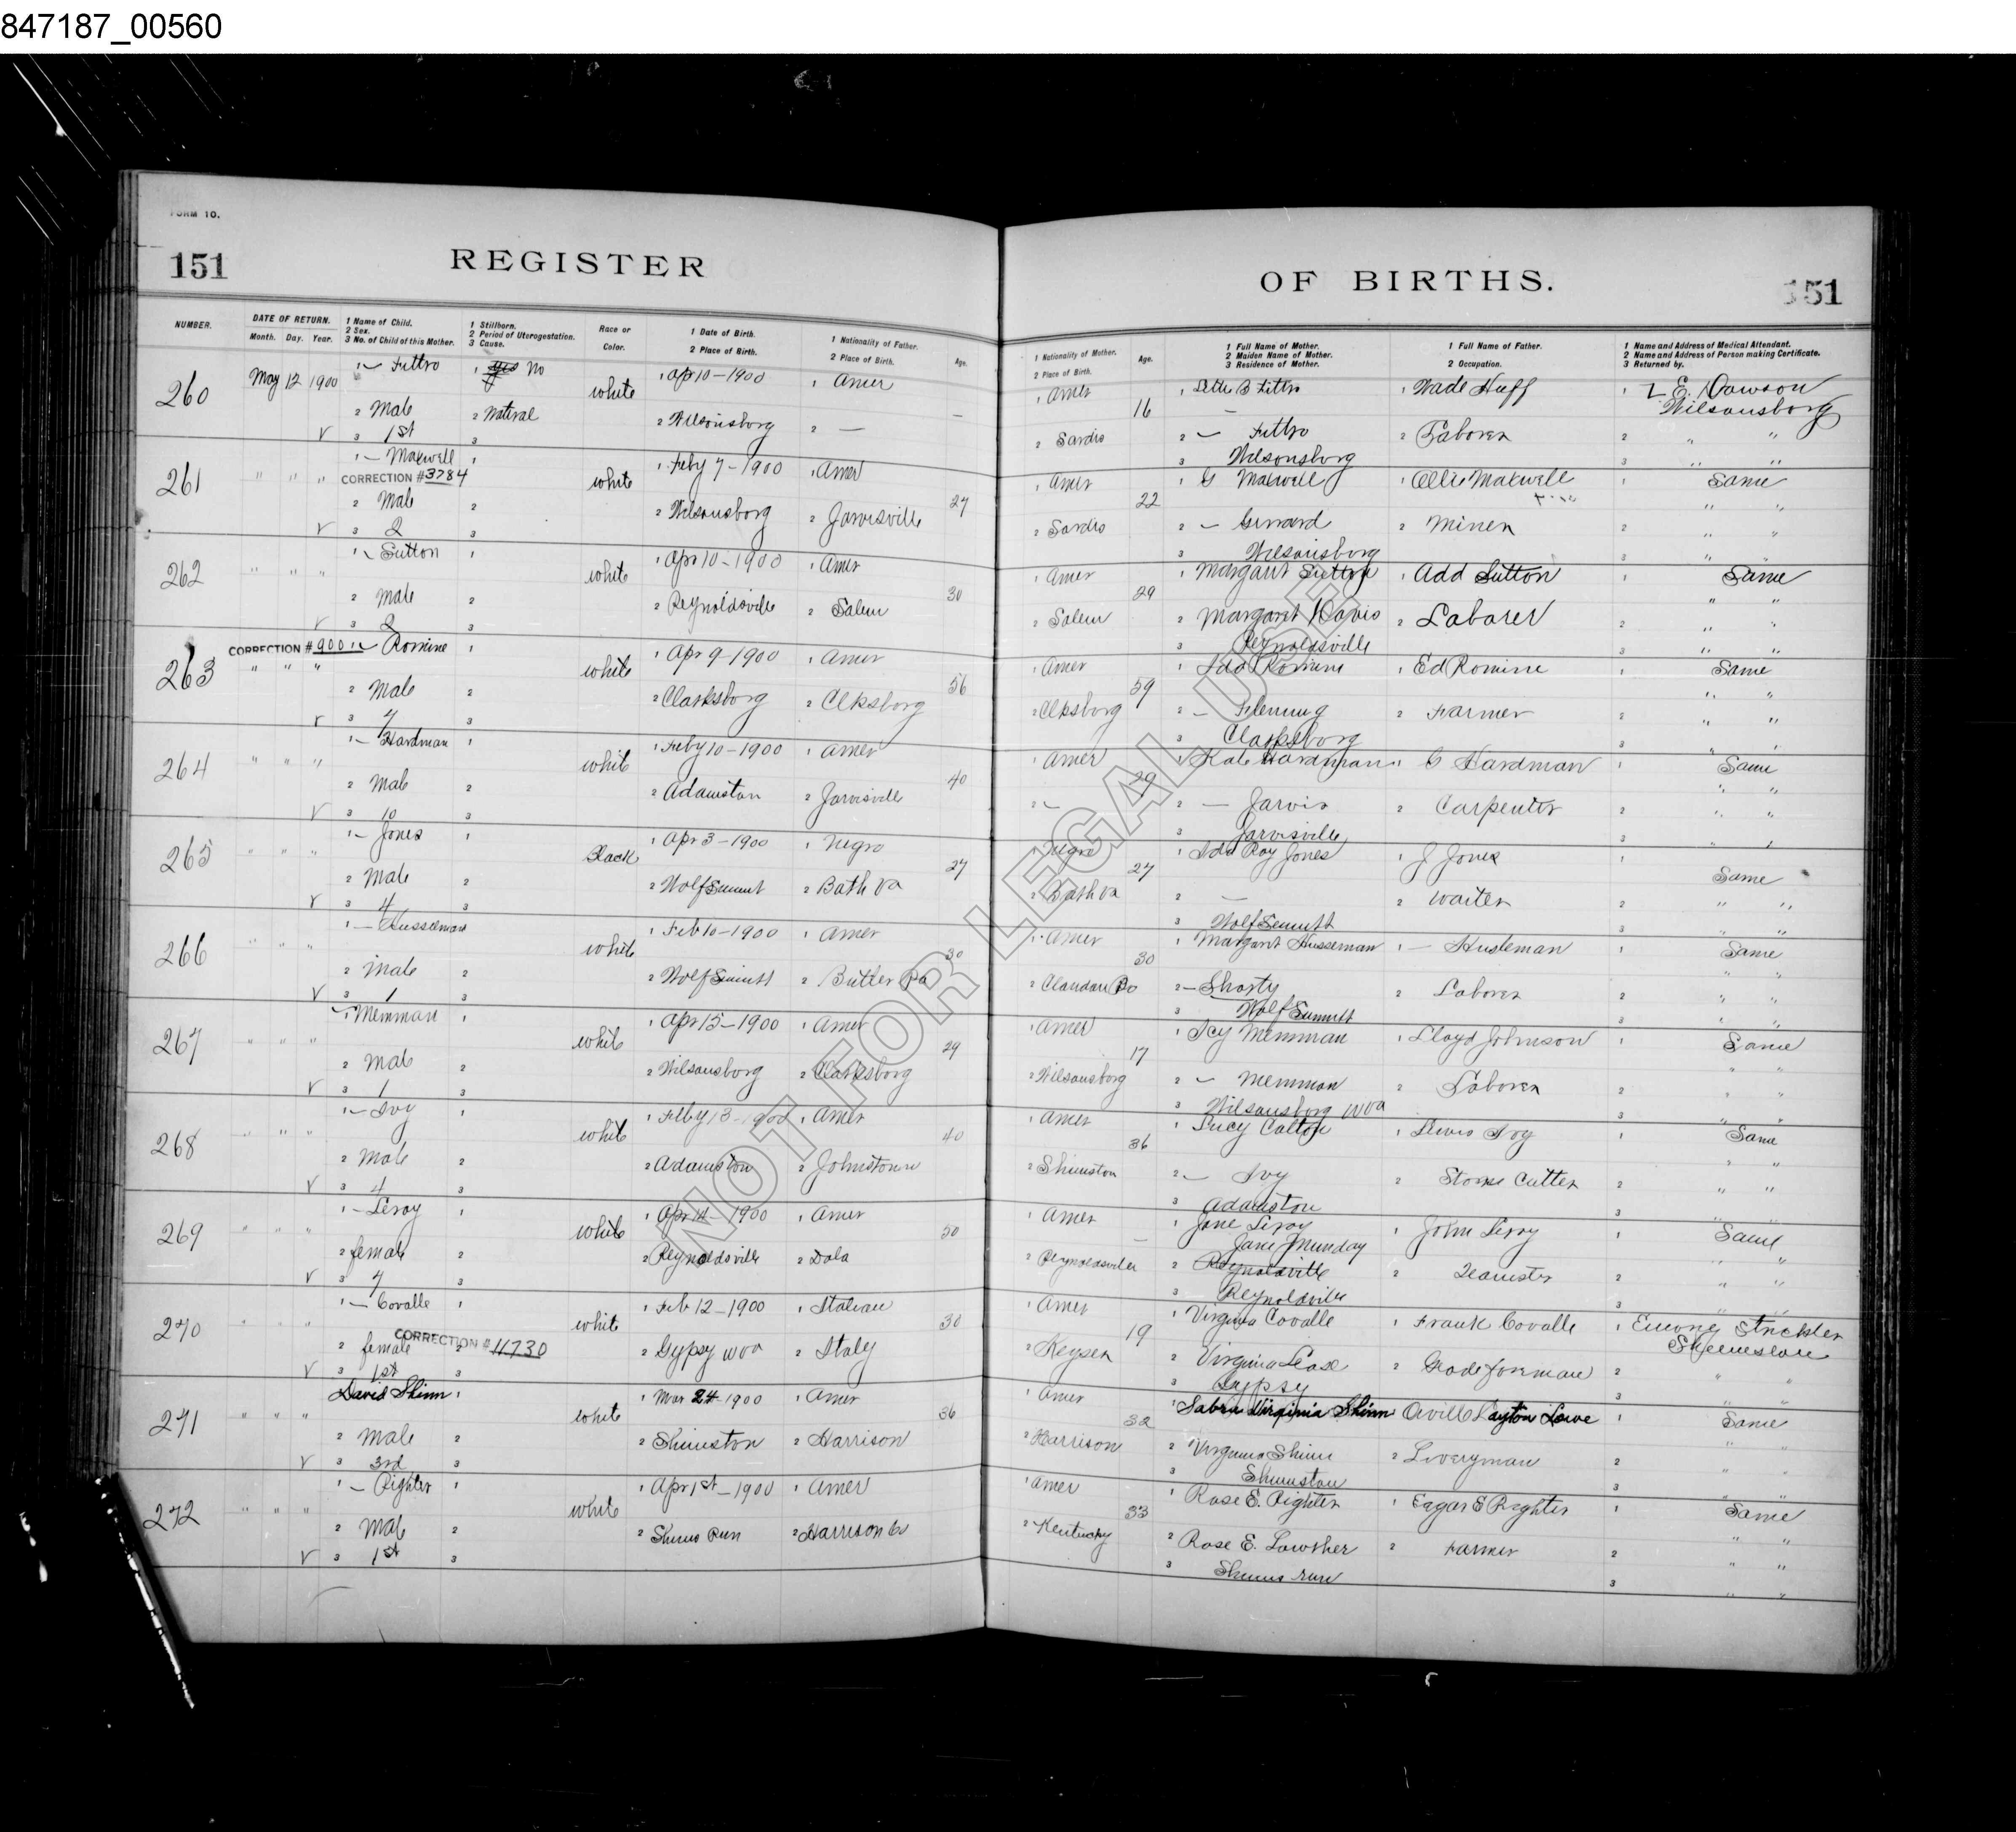 847187_00560
FORM 10.
151 REGISTER OF BIRTHS. 151
NUMBER. DATE OF RETURN. Month. Day. Year. 1 Name of Child. 2 Sex. 3 No. of Child of this Mother. 1 Stillborn. 2 Period of Uterogestation. 3 Cause. Race or Color. 1 Date of Birth. 2 Place of Birth. 1 Nationality of Father. 2 Place of Birth. Age. 1 Nationality of Mother. 2 Place of Birth. Age. 1 Full Name of Mother. 2 Maiden Name of Mother. 3 Residence of Mother. 1 Full Name of Father. 2 Occupation. 1 Name and Address of Medical Attendant. 2 Name and Address of Person making Certificate. 3 Returned by.
260 May 12 1900 1 – Fittro 1 No white 1 Apr 10-1900 1 Amer 1 Amer 16 1 1 Wade Huff 1 Z E. Dawson
Wilsonsburg
2 Male 2 Natural 2 Wilsonsburg 2 – 2 Sardis 2 – Fittro 2 Laborer 2 " "
3 1st 3 3 Wilsonsburg 3 " "
261 " " " 1 – Maxwell 1 white 1 Feby 7-1900 1 Amer 27 1 Amer 22 1 G Maxwell 1 Ollie Maxwell 1 Same
CORRECTION # 3784
2 Male 2 2 Wilsonsburg 2 Jarvisville 2 Sardis 2 – 2 Miner 2 " "
3 2 3 3 Wilsonsburg 3 " "
262 " " " 1 – Sutton 1 white 1 Apr 10-1900 1 Amer 30 1 Amer 29 1 Margaret Sutton 1 Add Sutton 1 Same
2 Male 2 2 Reynoldsville 2 Salem 2 Salem 2 Margaret Davis 2 Laborer 2 " "
3 2 3 3 Reynoldsville 3 " "
263 CORRECTION # 900 1 – Romine 1 white 1 Apr 9-1900 1 Amer 56 1 Amer 59 1 Ida Romine 1 Ed Romine 1 Same
2 Male 2 2 Clarksburg 2 Clksburg 2 Clksburg 2 – Fleming 2 Farmer 2 " "
3 4 3 3 Clarksburg 3 " "
264 " " " 1 – Hardman 1 white 1 Feby 10-1900 1 Amer 40 1 Amer 29 1 Kate Hardman 1 G Hardman 1 Same
2 Male 2 2 Adamston 2 Jarvisville 2 – 2 – Jarvis 2 Carpenter 2 " "
3 10 3 3 Jarvisville 3 " "
265 " " " 1 – Jones 1 Black 1 Apr 3-1900 1 Negro 27 1 Negro 27 1 Ida Roy Jones 1 J Jones 1 Same
2 Male 2 2 Wolf Summit 2 Bath Va 2 Bath Va 2 – 2 Waiter 2 " "
3 4 3 3 Wolf Summit 3 " "
266 " " " 1 – Husseman white 1 Feb 10-1900 1 Amer 30 1 Amer 30 1 Margaret Husseman 1 – Husleman 1 Same
2 Male 2 2 Wolf Summit 2 Butler Pa 2 2 – Shorty 2 Laborer 2 " "
3 1 3 3 Wolf Summit 3 " "
267 " " " 1 – Memman 1 white 1 Apr 15-1900 1 Amer 29 1 Amer 17 1 Icy Memman 1 Lloyd Johnson 1 Same
2 Male 2 2 Wilsonsburg 2 Clarksburg 2 Wilsonsburg 2 – Memman 2 Laborer 2 " "
3 1 3 3 Wilsonsburg WVa 3 " "
268 " " " 1 – Ivy 1 white 1 Feby 13-1900 1 Amer 40 1 Amer 36 1 Lucy Calton 1 Lewis Ivy 1 Same
2 Male 2 2 Adamston 2 Johnstown 2 Shinnston 2 – Ivy 2 Stone Cutter 2 " "
3 4 3 3 Adamston 3 " "
269 " " " 1 – Leroy 1 white 1 Apr 14-1900 1 Amer 50 1 Amer – 1 Jane Leroy 1 John Leroy 1 Same
Jane Munday
2 female 2 2 Reynoldsville 2 Dola 2 Reynoldsville 2 Reynoldville 2 Teamster 2 " "
3 4 3 3 Reynoldville 3 " "
270 " " " 1 – Covalle 1 white 1 Feb 12-1900 1 Italian 30 1 Amer 19 1 Virginia Covalle 1 Frank Covalle 1 Emory Strickler
CORRECTION # 11730
2 female 2 2 Gypsy WVa 2 Italy 2 Keyser 2 Virginia Lease 2 Grade foreman 2 " "
3 1st 3 3 Gypsy 3 " "
271 " " " David Shinn 1 white 1 Mar 24-1900 1 Amer 36 1 Amer 32 1 Sabra Virginia Shinn Orville Layton Lowe 1 Same
2 Male 2 2 Shinnston 2 Harrison 2 Harrison 2 Virginia Shinn 2 Liveryman 2 " "
3 3rd 3 3 Shinnston 3 " "
272 " " " 1 – Righter 1 white 1 Apr 1st-1900 1 Amer 1 Amer 33 1 Rose E. Righter 1 Eagar E Righter 1 Same
2 Male 2 2 Shinns Run 2 Harrison Co 2 Kentucky 2 Rose E. Lowther 2 Farmer 2 " "
3 1st 3 3 Shinns run 3 " "
NOT FOR LEGAL USE